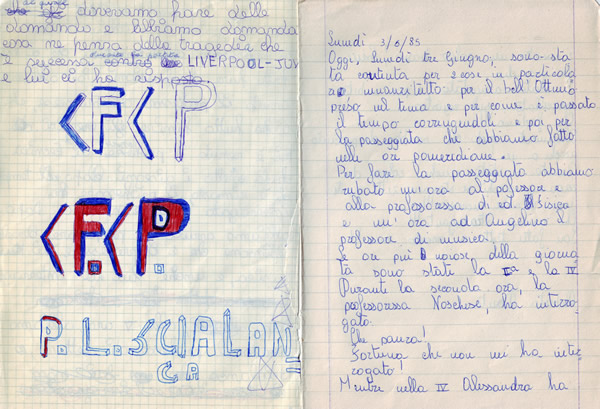 dovevamo fare delle
domande e abbiamo domandato
cosa ne pensa della tragedia che
è successa LIVERPOOL-JUV
e lui ci ha risposto
<F<P
<F.<P.
P. L. SCIALAN=
GA
Lunedì 3/6/85
Oggi, Lunedì tre Giugno, sono sta
ta contenta per 2 cose in particola
re innanzitutto per il bell'Ottimo
preso nel tema e per come è passato
il tempo correggendoli e poi per
la passeggiata che abbiamo fatto
nelle ore pomeridiane.
Per fare la passeggiata abbiamo
rubato un'ora al pofessor e
alla professoressa di ed. Fisica
e un'ora ad Angelino il
professor di musica.
Le ore più noiose della giorna
tà sono stati la e la IV
Durante la seconda ora, la
professoressa Noschese, ha interro
gato.
Che paura!
Fortuna che non mi ha inter
rogato!
Mentre nella IV Alessandra ha